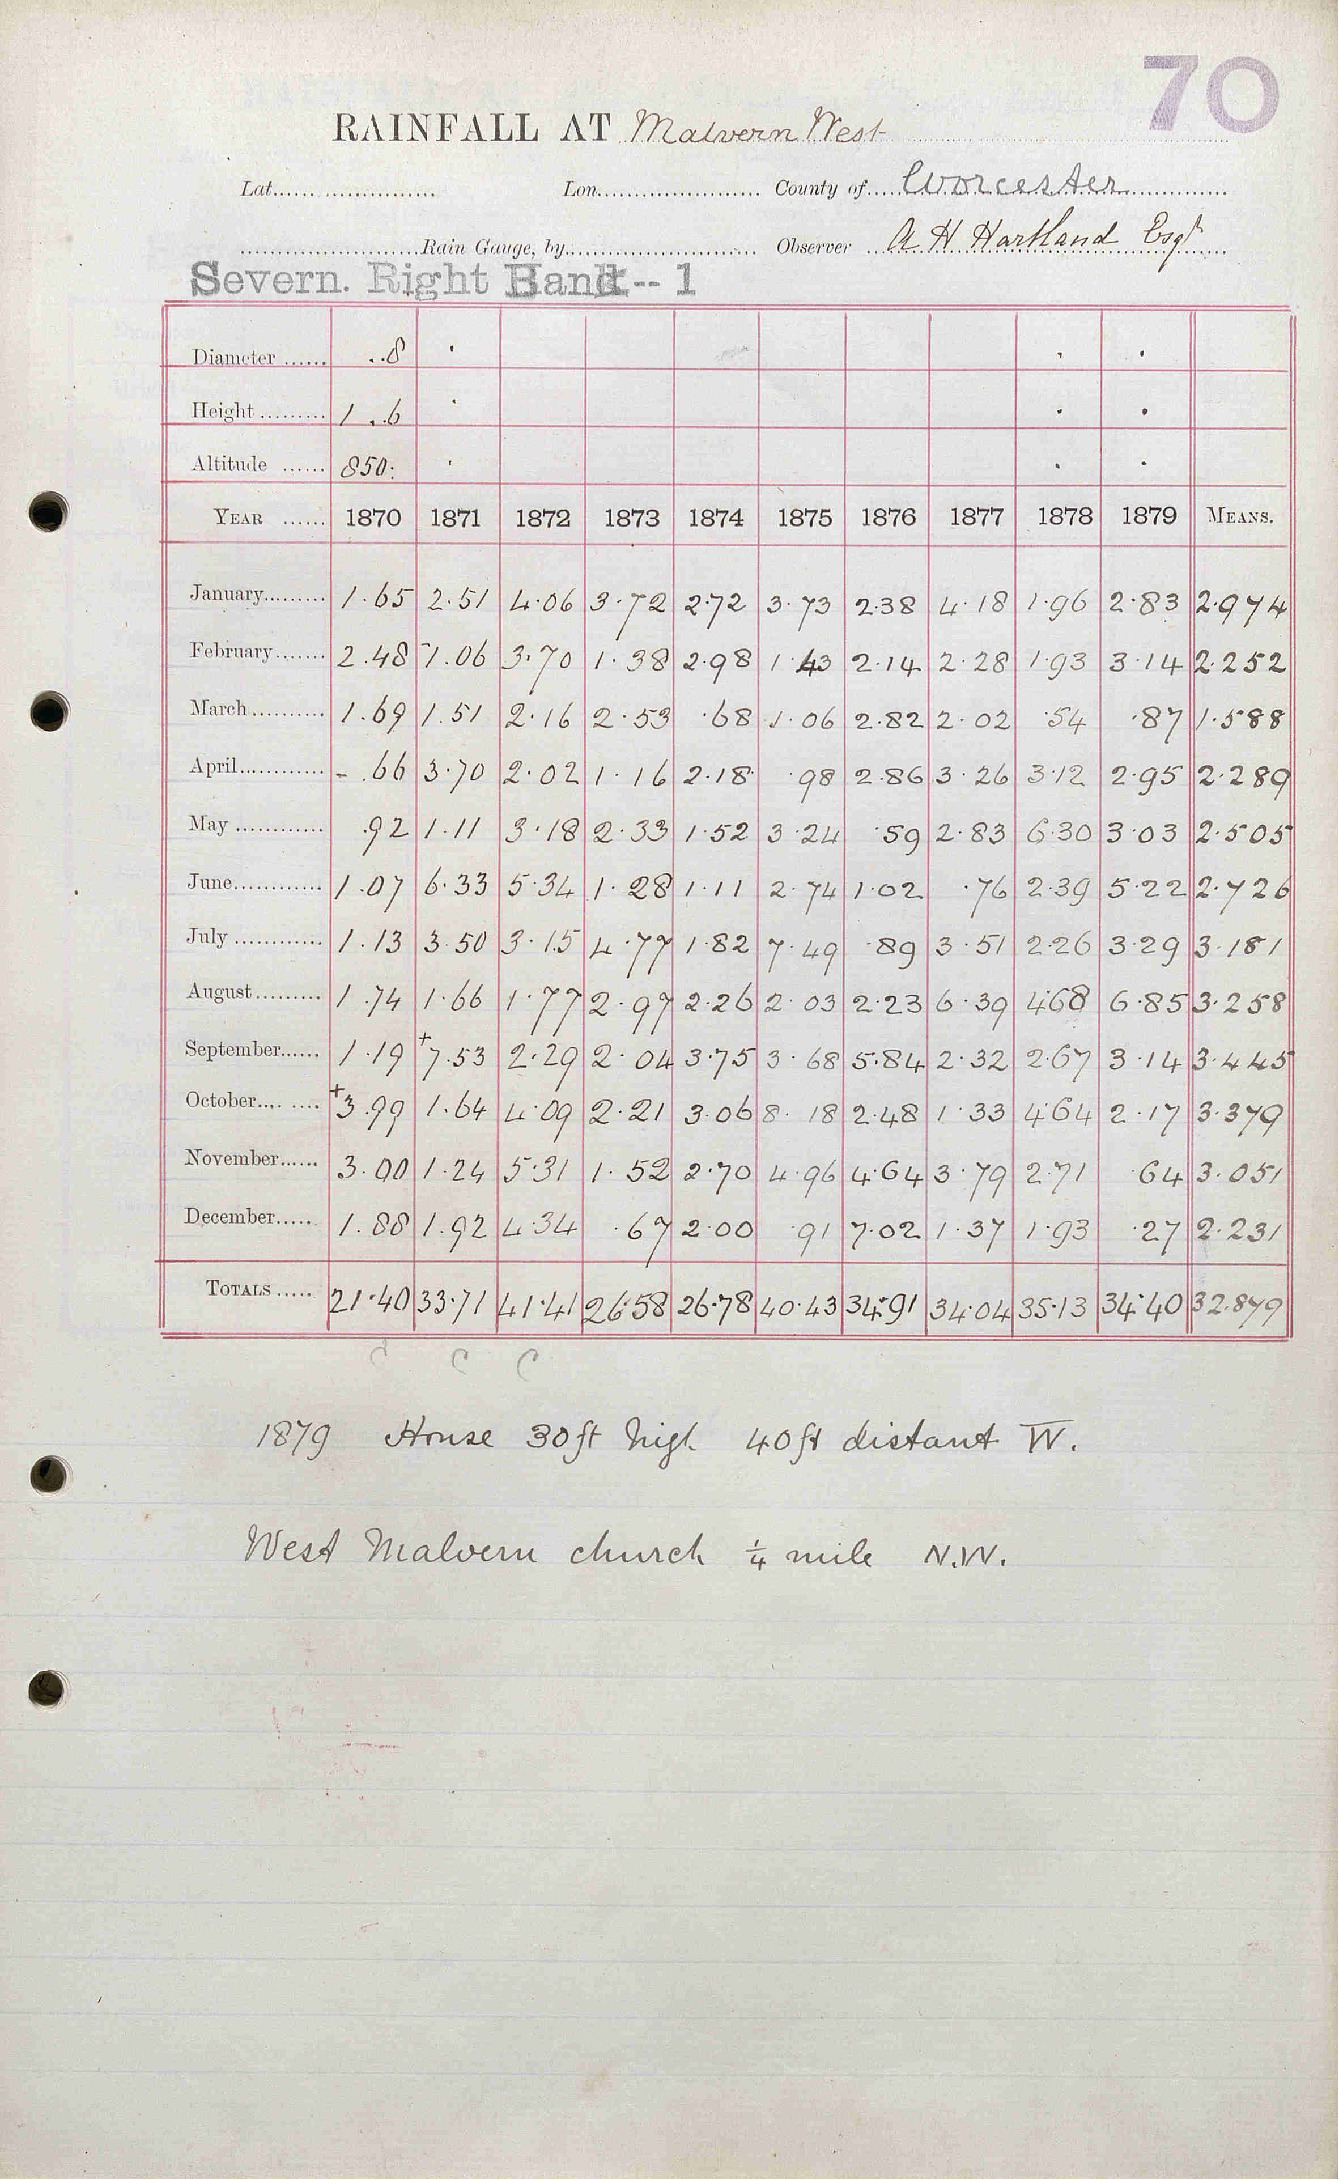 70
RAINFALL AT Malvern West
Lat. Lon. County of Worcester
Rain Gauge, by Observer A H Hartland Esqr
Severn. Right Bank -- 1
Diameter ...... ..8
Height ......... 1 ..6
Altitude ...... 850.
YEAR ...... 1870 1871 1872 1873 1874 1875 1876 1877 1878 1879 MEANS.
January......... 1.65 2.51 4.06 3.72 2.72 3.73 2.38 4.18 1.96 2.83 2.974
February....... 2.48 1.06 3.70 1.38 2.98 1.43 2.14 2.28 1.93 3.14 2.252
March.......... 1.69 1.51 2.16 2.53 .68 1.06 2.82 2.02 .54 .87 1.588
April............ - .66 3.70 2.02 1.16 2.18 .98 2.86 3.26 3.12 2.95 2.289
May ............ .92 1.11 3.18 2.33 1.52 3.24 .59 2.83 6.30 3.03 2.505
June............ 1.07 6.33 5.34 1.28 1.11 2.74 1.02 .76 2.39 5.22 2.726
July ............ 1.13 3.50 3.15 4.77 1.82 7.49 .89 3.51 2.26 3.29 3.181
August......... 1.74 1.66 1.77 2.97 2.26 2.03 2.23 6.39 4.68 6.85 3.258
September...... 1.19 +7.53 2.29 2.04 3.75 3.68 5.84 2.32 2.67 3.14 3.445
October.... .... +3.99 1.64 4.09 2.21 3.06 8.18 2.48 1.33 4.64 2.17 3.379
November...... 3.00 1.24 5.31 1.52 2.70 4.96 4.64 3.79 2.71 .64 3.051
December..... 1.88 1.92 4.34 .67 2.00 .91 7.02 1.37 1.93 .27 2.231
TOTALS ..... 21.40 33.71 41.41 26.58 26.78 40.43 34.91 34.04 35.13 34.40 32.879
c c c
1879 House 30ft high 40ft distant W.
West Malvern church ¼ mile N.W.